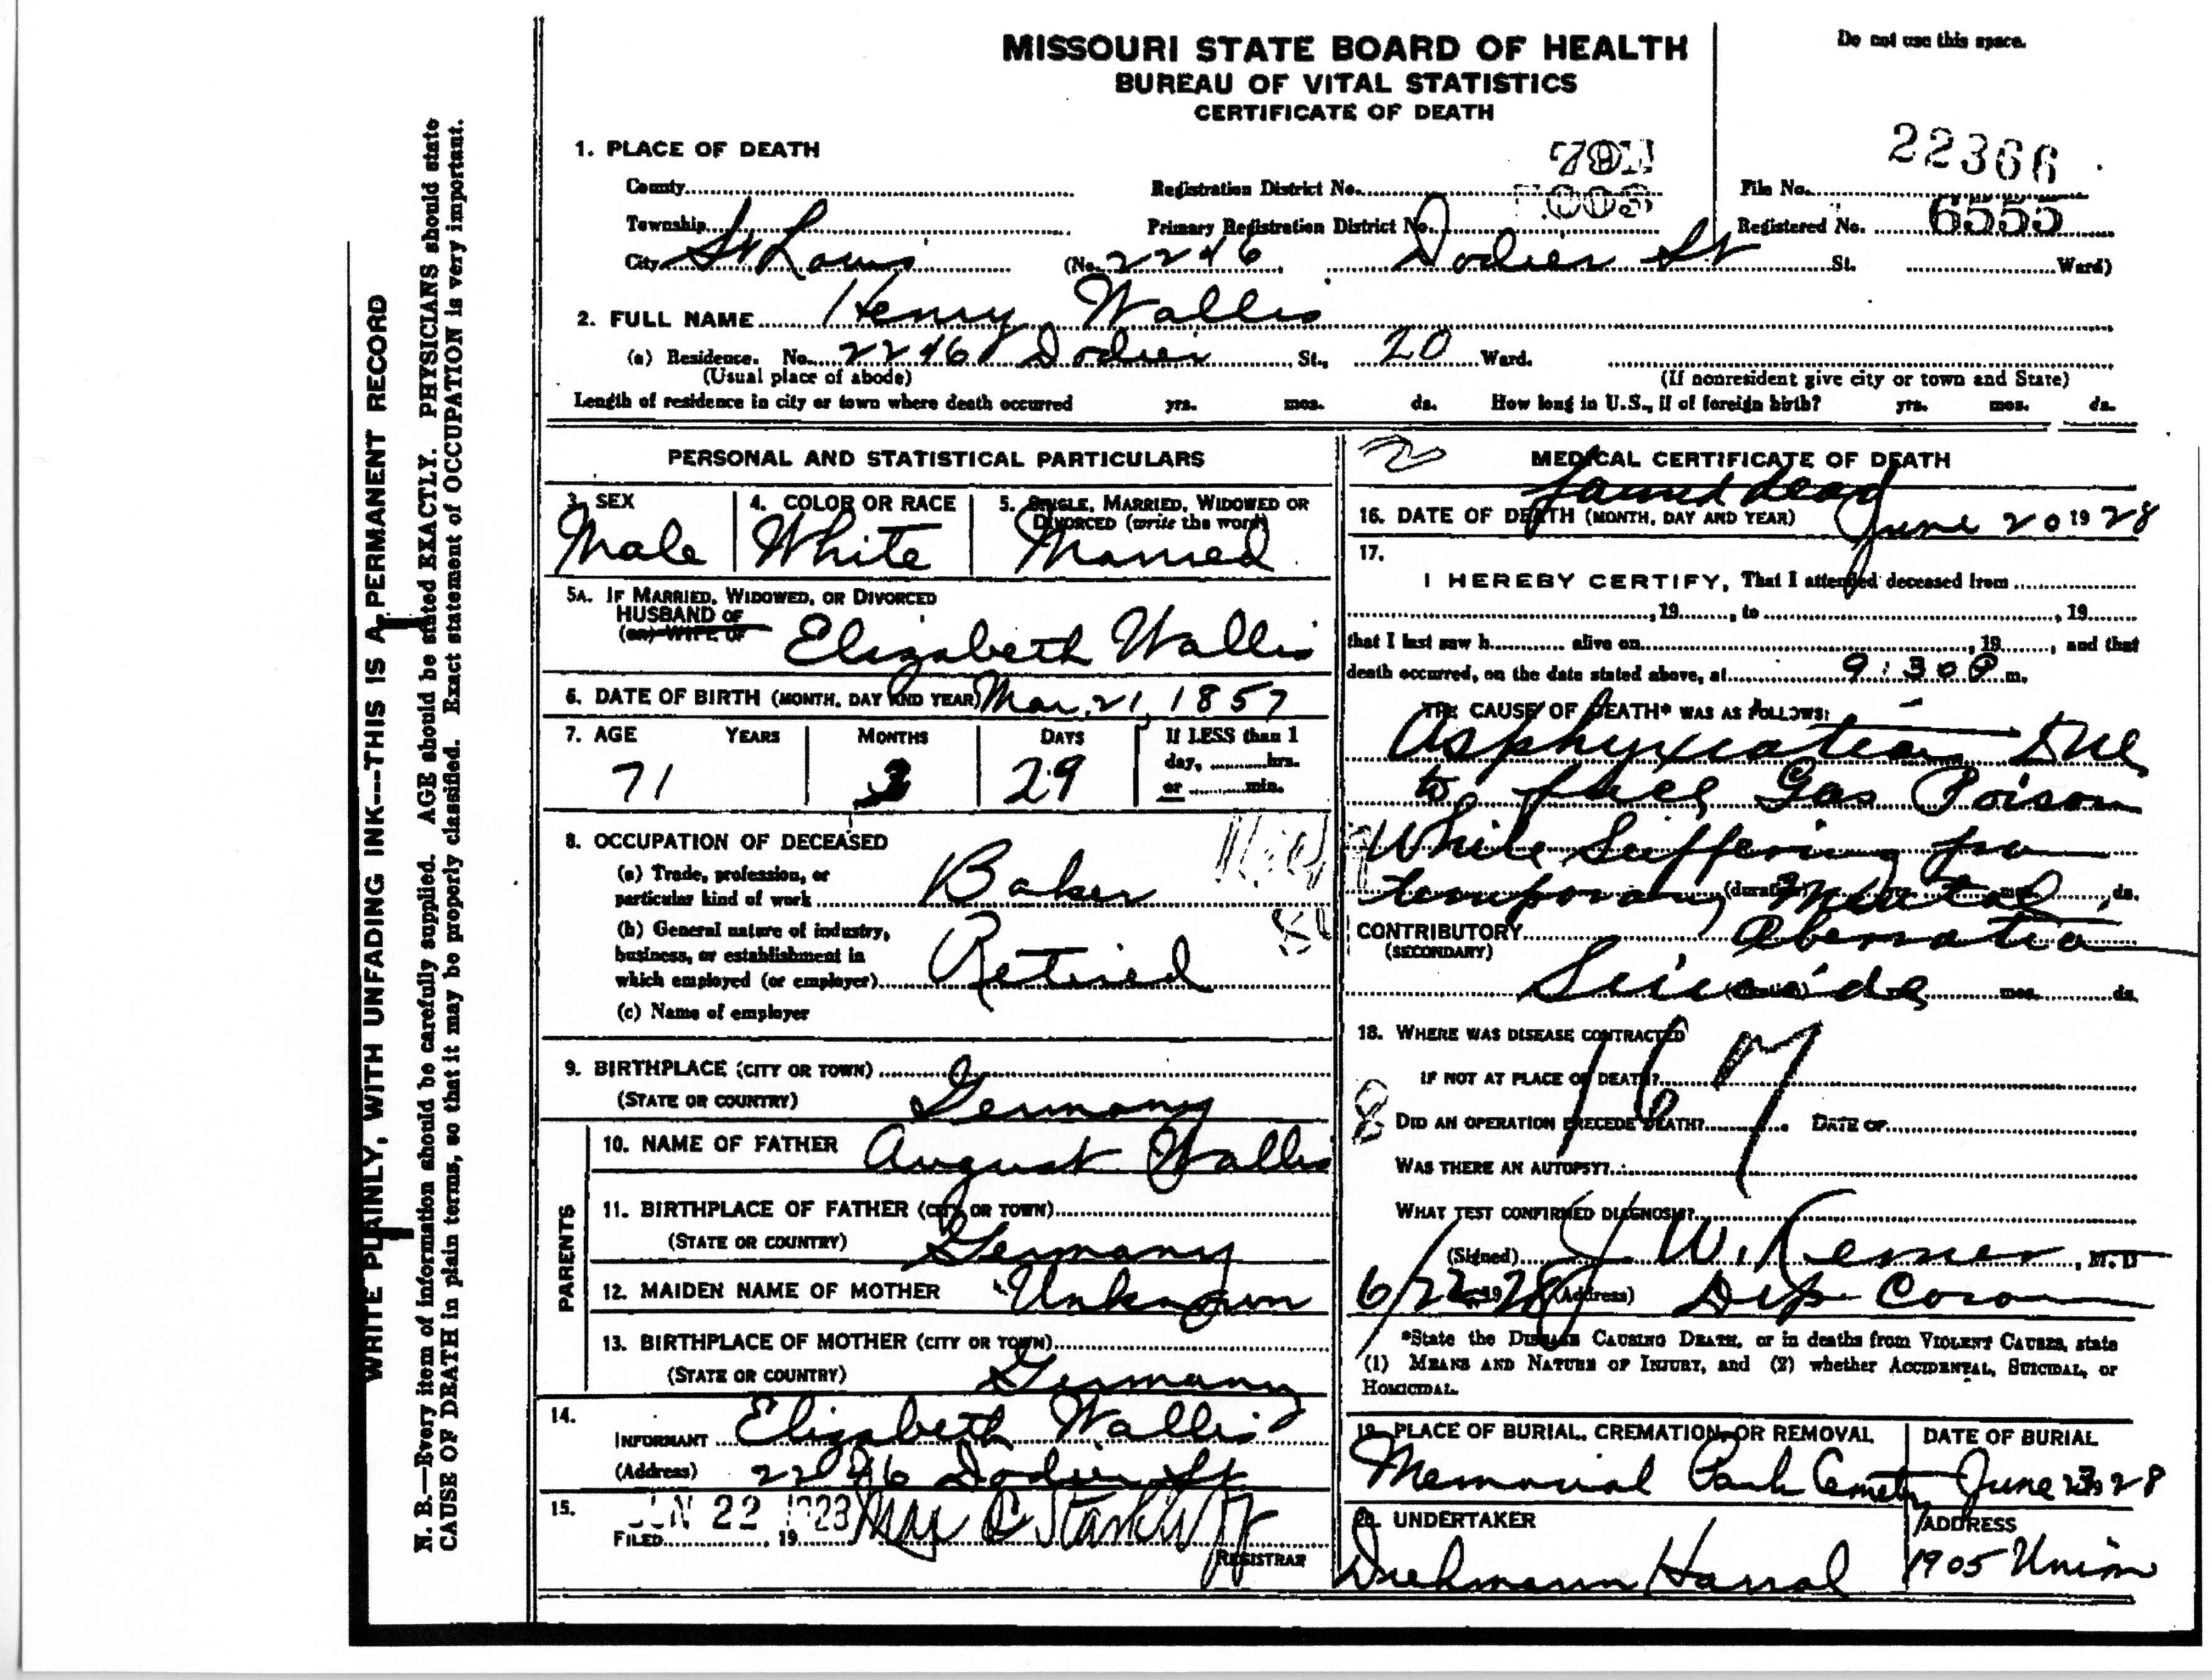 MISSOURI STATE BOARD OF HEALTH
BUREAU OF VITAL STATISTICS
CERTIFICATE OF DEATH
Do not use this space.
1. PLACE OF DEATH
County
Registration District No. 791
File No. 22366
Township
Primary Registration District No. 1003
Registered No. 6555
City St Louis (No. 2246 Dodier St St. Ward)
2. FULL NAME Henry Wallis
(a) Residence. No. 2246 Dodier St., 20 Ward.
(Usual place of abode) (If nonresident give city or town and State)
Length of residence in city or town where death occurred yrs. mos. ds. How long in U.S., if of foreign birth? yrs. mos. ds.
PERSONAL AND STATISTICAL PARTICULARS
3. SEX
Male
4. COLOR OR RACE
White
5. SINGLE, MARRIED, WIDOWED OR
DIVORCED (write the word)
Married
5A. IF MARRIED, WIDOWED, OR DIVORCED
HUSBAND OF
(or) WIFE OF Elizabeth Wallis
6. DATE OF BIRTH (MONTH, DAY AND YEAR) Mar. 21, 1857
7. AGE YEARS MONTHS DAYS If LESS than 1
day, hrs.
or min.
71 3 29
8. OCCUPATION OF DECEASED
(a) Trade, profession, or
particular kind of work Baker
(b) General nature of industry,
business, or establishment in
which employed (or employer) Retired
(c) Name of employer
9. BIRTHPLACE (CITY OR TOWN)
(STATE OR COUNTRY) Germany
PARENTS
10. NAME OF FATHER August Wallis
11. BIRTHPLACE OF FATHER (CITY OR TOWN)
(STATE OR COUNTRY) Germany
12. MAIDEN NAME OF MOTHER Unknown
13. BIRTHPLACE OF MOTHER (CITY OR TOWN)
(STATE OR COUNTRY) Germany
14.
INFORMANT Elizabeth Wallis
(Address) 2246 Dodier St
15.
FILED JUN 22 1928, 19 Max C Starkloff
REGISTRAR
2
MEDICAL CERTIFICATE OF DEATH
found dead
16. DATE OF DEATH (MONTH, DAY AND YEAR) June 20 1928
17.
I HEREBY CERTIFY, That I attended deceased from
, 19 , to , 19
that I last saw h alive on , 19 , and that
death occurred, on the date stated above, at 9:30 P m.
THE CAUSE OF DEATH* WAS AS FOLLOWS:
Asphyxiation Due
to fuel Gas Poison
While Suffering from
temporary Mental (duration) yrs. mos. ds.
CONTRIBUTORY Aberration
(SECONDARY)
Suicide (duration) yrs. mos. ds.
18. WHERE WAS DISEASE CONTRACTED
IF NOT AT PLACE OF DEATH?
167
DID AN OPERATION PRECEDE DEATH? DATE OF
WAS THERE AN AUTOPSY?
WHAT TEST CONFIRMED DIAGNOSIS?
(Signed) J W. Kerner, M.D
6/22, 1928 (Address) Dep Coron
*State the DISEASE CAUSING DEATH, or in deaths from VIOLENT CAUSES, state
(1) MEANS AND NATURE OF INJURY, and (2) whether ACCIDENTAL, SUICIDAL, or
HOMICIDAL.
19. PLACE OF BURIAL, CREMATION, OR REMOVAL
Memorial Park Cemetery
DATE OF BURIAL
June 23 1928
20. UNDERTAKER
Diekmann Harral
ADDRESS
1905 Union
WRITE PLAINLY, WITH UNFADING INK---THIS IS A PERMANENT RECORD
N. B.—Every item of information should be carefully supplied. AGE should be stated EXACTLY. PHYSICIANS should state
CAUSE OF DEATH in plain terms, so that it may be properly classified. Exact statement of OCCUPATION is very important.